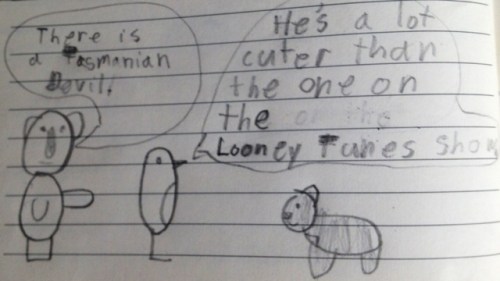 There is
a Tasmanian
Devil.
He's a lot
cuter than
the one on
the
Looney Tunes Show